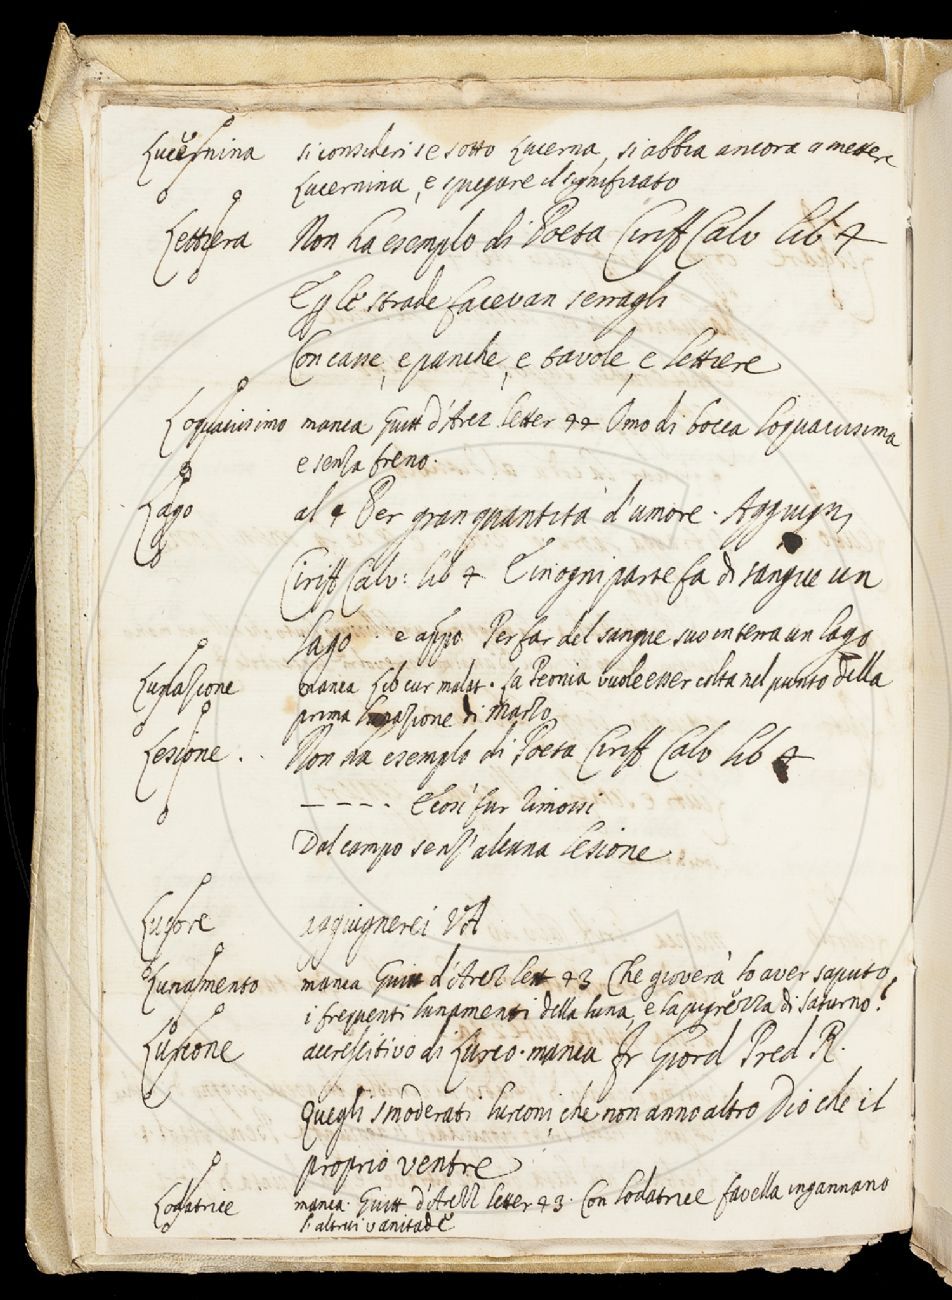 Lucernina si consideri se sotto Lucerna, si abbia ancora a mettere
Lucernina, e spiegare il significato
Lettiera Non ha esemplo di Poeta Ciriff Calv lib 4
E p le strade facevan serragli
Con casse, e panche, e tavole, e lettiere
Loquacissimo manca Guitt d'Arez letter 44 Omo di bocca loquacissima
e senza freno.
Lago al § Per gran quantità d'umore. Aggiugni
Ciriff Calv: lib 4 E in ogni parte fa di sangue un
lago e appo Per far del sangue suo in terra un lago
Lunazione manca Lib cur malat. La Peonia vuole esser colta nel punto della
prima lunazione di Marzo
Lesione.. Non ha esemplo di Poeta Ciriff Calv lib 4
---- E così fur rimossi
Dal campo senz'alcuna lesione
aggiugnerei VA
Lunamento manca Guitt d'Arezz lett 43 Che gioverà lo aver saputo
i frequenti lunamenti della luna, e la pigrezza di Saturno?
Lurcone accrescitivo di Lurco. manca Fr Giord Pred R.
Quegli smoderati lurconi, che non anno altro Dio che il
proprio ventre
Lodatrice manca. Guitt d'Arezz letter 43. Con lodatrice favella ingannano
l'altrui vanitade